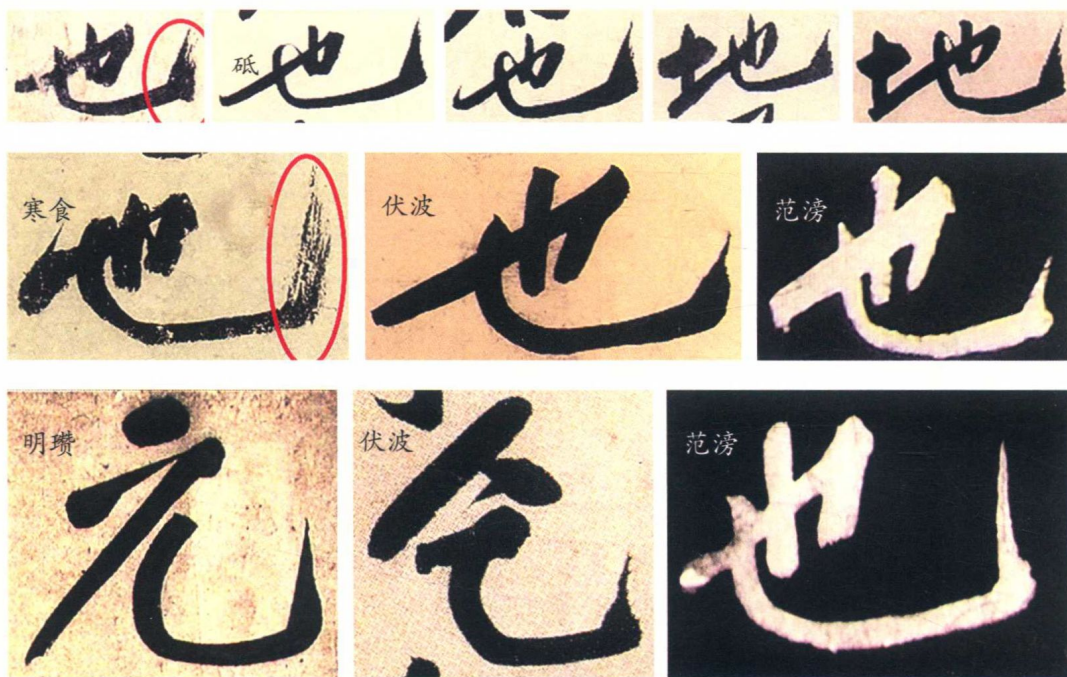 也 砥 也 也 地 地
寒食 也 伏波 也 范滂 也
明瓒 元 伏波 范滂 也